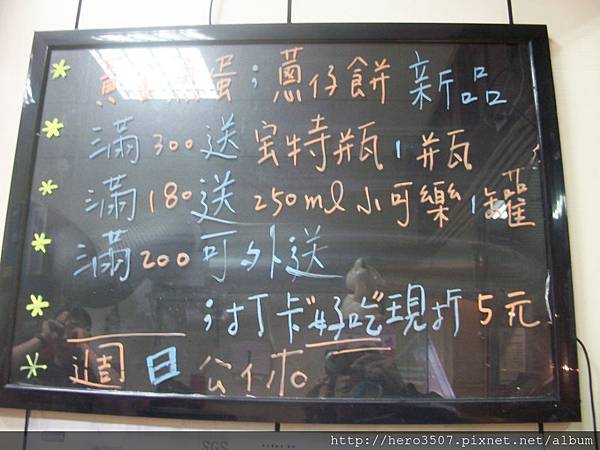 蛋；蔥仔餅 新品
滿300送宝特瓶1瓶
滿180送250ml小可樂1罐
滿200可外送
；打卡"好吃"現折5元
週日公休
SGS
http://hero3507.pixnet.net/album